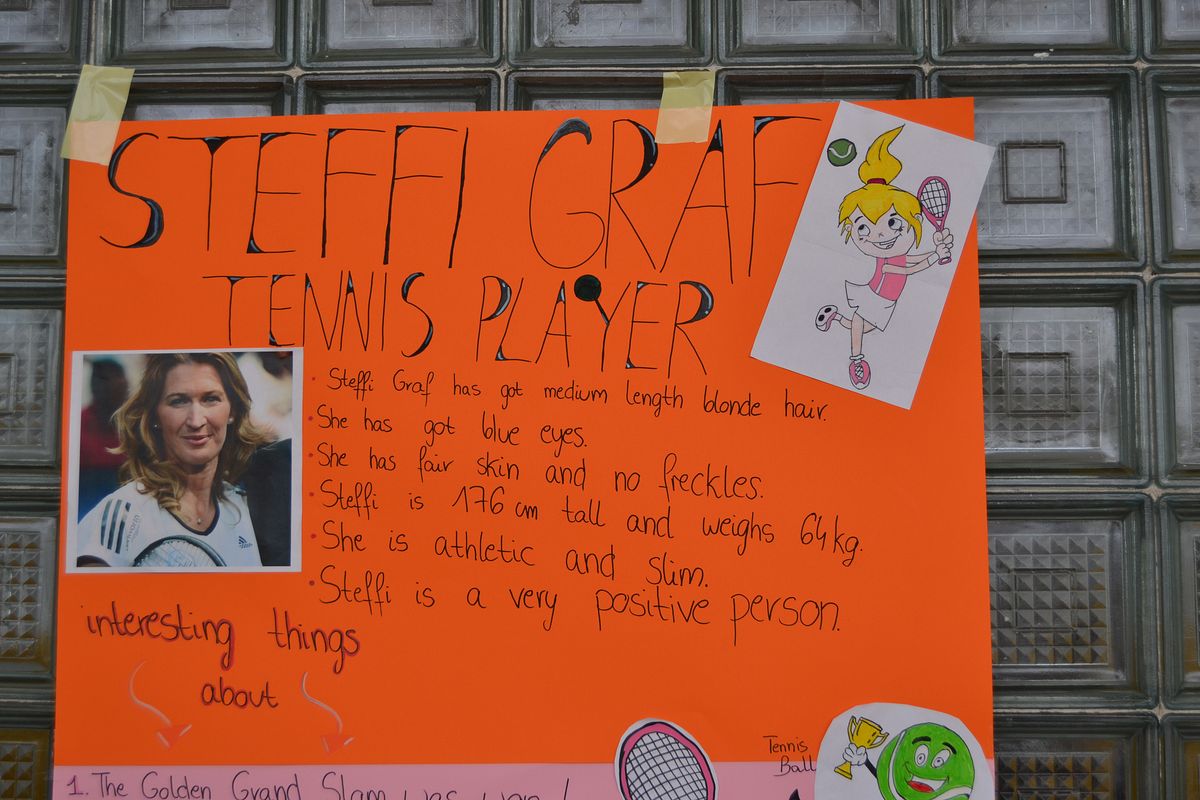 STEFFI GRAF
TENNIS PLAYER
• Steffi Graf has got medium length blonde hair.
• She has got blue eyes.
• She has fair skin and no freckles.
• Steffi is 176 cm tall and weighs 64 kg.
• She is athletic and slim.
• Steffi is a very positive person.
interesting things
about
Tennis
Ball
1. The Golden Grand Slam was